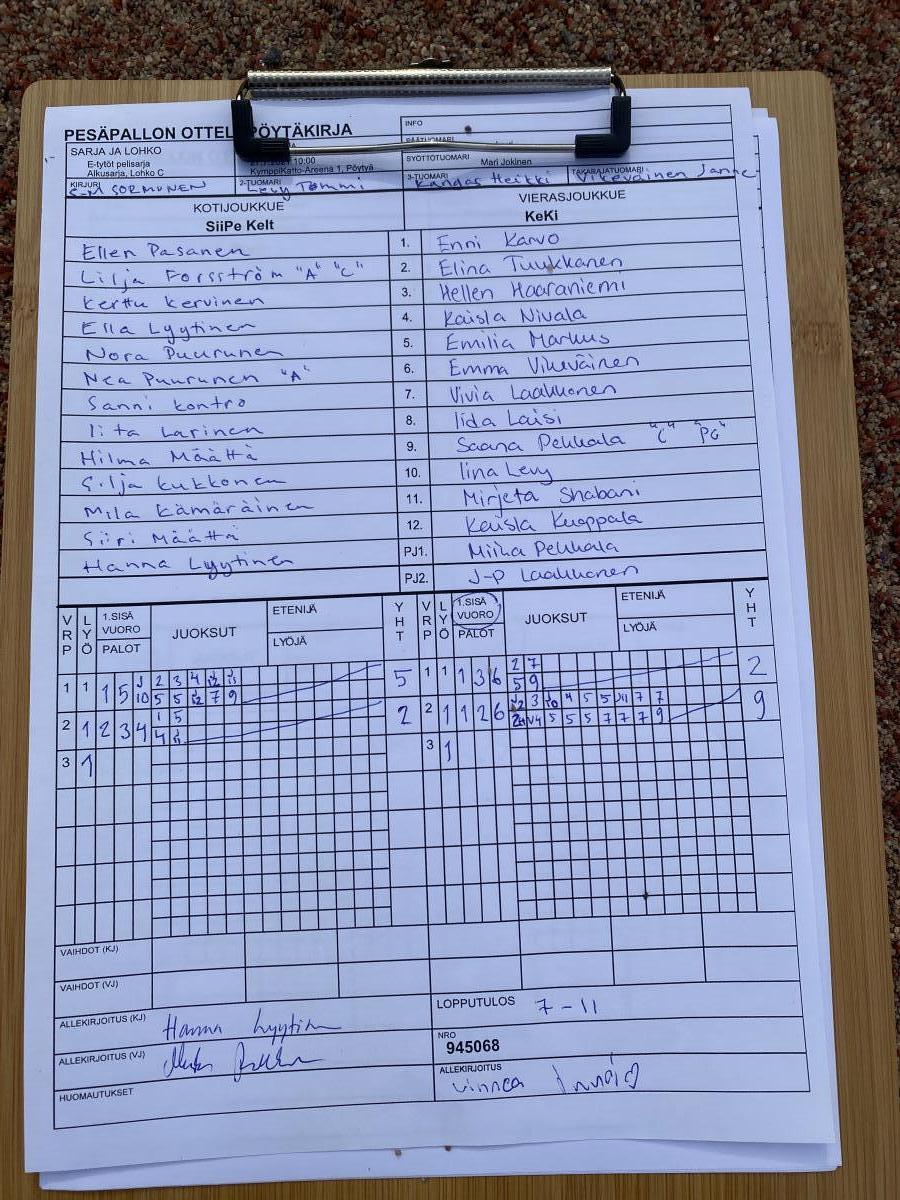 PESÄPALLON OTTEL PÖYTÄKIRJA
INFO
SARJA JA LOHKO
E-tytöt pelisarja
Alkusarja, Lohko C
10:00
KymppiKatto-Areena 1, Pöytyä
SYÖTTÖTUOMARI
Mari Jokinen
KIRJURI
SORMUNEN
2-TUOMARI
Levy Tommi
3-TUOMARI
Kangas Heikki
TAKARAJATUOMARI
Vikeväinen Janne
KOTIJOUKKUE
SiiPe Kelt
VIERASJOUKKUE
KeKi
Ellen Pasanen 1. Enni Karvo
Lilja Forsström "A" "C" 2. Elina Tuukkanen
Kerttu Kervinen 3. Hellen Haaraniemi
Ella Lyytinen 4. Kaisla Nivala
Nora Puurunen 5. Emilia Markus
Nea Puurunen "A" 6. Emma Vikeväinen
Sanni Kontro 7. Vivia Laakkonen
Iita Larinen 8. Iida Laisi
Hilma Määttä 9. Saana Pekkala "C" "PG"
Silja Kukkonen 10. Iina Levy
Mila Kämäräinen 11. Mirjeta Shabani
Siiri Määttä 12. Kaisla Kuoppala
Hanna Lyytinen PJ1. Miika Pekkala
PJ2. J-P Laakkonen
VRP LYÖ 1.SISÄ VUORO PALOT JUOKSUT ETENIJÄ LYÖJÄ YHT VRP LYÖ 1.SISÄ VUORO PALOT JUOKSUT ETENIJÄ LYÖJÄ YHT
1 1 1 5 10 2 3 4 12 11 5 1 1 1 3 6 2 7 2
5 5 12 7 9 5 9
2 1 2 3 4 1 5 2 2 1 1 2 6 12 3 10 4 5 5 11 7 7 9
4 11 4 5 5 5 7 7 7 9
3 1 3 1
VAIHDOT (KJ)
VAIHDOT (VJ)
ALLEKIRJOITUS (KJ) Hanna Lyytin
LOPPUTULOS 7-11
ALLEKIRJOITUS (VJ)
NRO
945068
HUOMAUTUKSET
ALLEKIRJOITUS